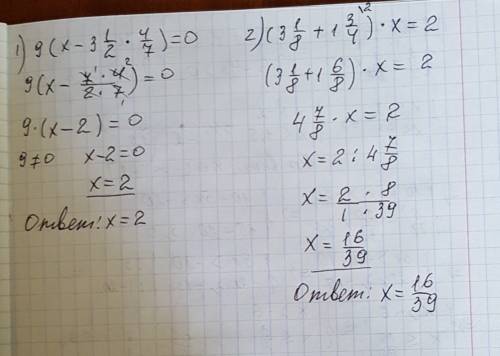 1) 9(x - 3 1/2 · 4/7) = 0
9(x - 7¹ · 4² / 2 · 7₁) = 0
9 · (x - 2) = 0
9 ≠ 0 x - 2 = 0
x = 2
Ответ: x = 2
2) (3 1/8 + 1 3/4\²) · x = 2
(3 1/8 + 1 6/8) · x = 2
4 7/8 · x = 2
x = 2 : 4 7/8
x = 2 · 8 / 1 · 39
x = 16/39
Ответ: x = 16/39